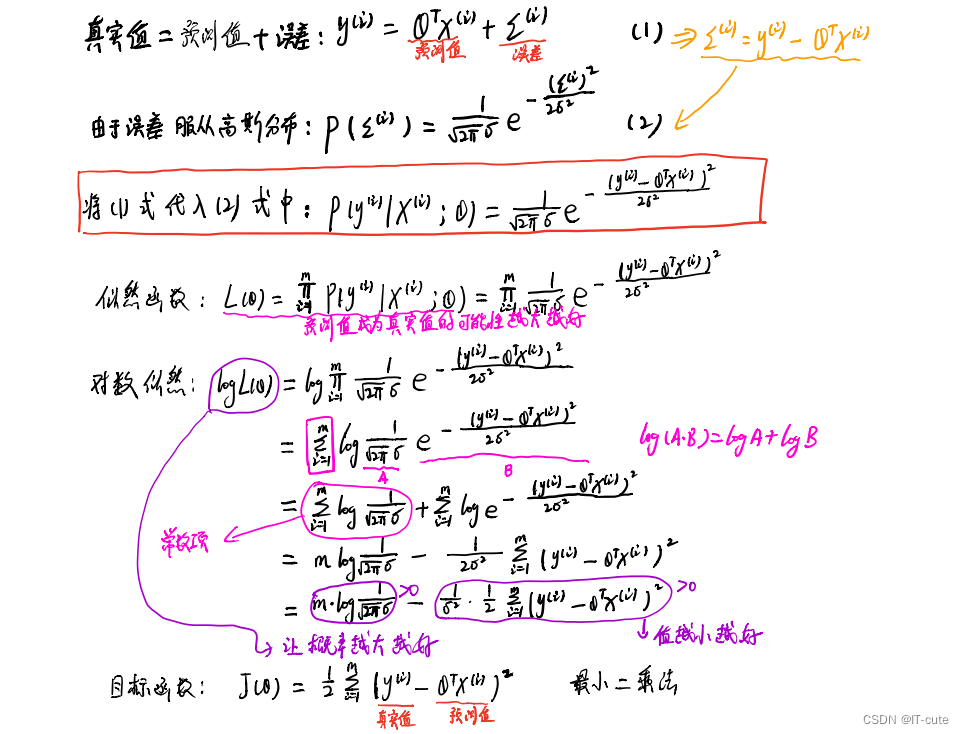 真实值 = 预测值 + 误差: y⁽ⁱ⁾ = θᵀx⁽ⁱ⁾ + Σ⁽ⁱ⁾ (1) ⇒ Σ⁽ⁱ⁾ = y⁽ⁱ⁾ - θᵀx⁽ⁱ⁾
预测值 误差
由于误差服从高斯分布: P(Σ⁽ⁱ⁾) = 1/(√(2π)σ) e^(-(Σ⁽ⁱ⁾)²/(2σ²)) (2)
将(1)式代入(2)式中: P(y⁽ⁱ⁾|x⁽ⁱ⁾;θ) = 1/(√(2π)σ) e^(-(y⁽ⁱ⁾-θᵀx⁽ⁱ⁾)²/(2σ²))
似然函数: L(θ) = ∏_{i=1}^{m} P(y⁽ⁱ⁾|x⁽ⁱ⁾;θ) = ∏_{i=1}^{m} 1/(√(2π)σ) e^(-(y⁽ⁱ⁾-θᵀx⁽ⁱ⁾)²/(2σ²))
预测值成为真实值的可能性越大越好
对数似然: logL(θ) = log ∏_{i=1}^{m} 1/(√(2π)σ) e^(-(y⁽ⁱ⁾-θᵀx⁽ⁱ⁾)²/(2σ²))
= Σ_{i=1}^{m} log 1/(√(2π)σ) e^(-(y⁽ⁱ⁾-θᵀx⁽ⁱ⁾)²/(2σ²)) log(A·B)=logA+logB
A B
= Σ_{i=1}^{m} log 1/(√(2π)σ) + Σ_{i=1}^{m} log e^(-(y⁽ⁱ⁾-θᵀx⁽ⁱ⁾)²/(2σ²))
常数项
= m log 1/(√(2π)σ) - 1/(2σ²) Σ_{i=1}^{m} (y⁽ⁱ⁾-θᵀx⁽ⁱ⁾)²
= m·log 1/(√(2π)σ) >0 - 1/σ² · 1/2 Σ_{i=1}^{m} (y⁽ⁱ⁾-θᵀx⁽ⁱ⁾)² >0
让概率越大越好 值越小越好
目标函数: J(θ) = 1/2 Σ_{i=1}^{m} (y⁽ⁱ⁾-θᵀx⁽ⁱ⁾)² 最小二乘法
真实值 预测值
CSDN @IT-cute